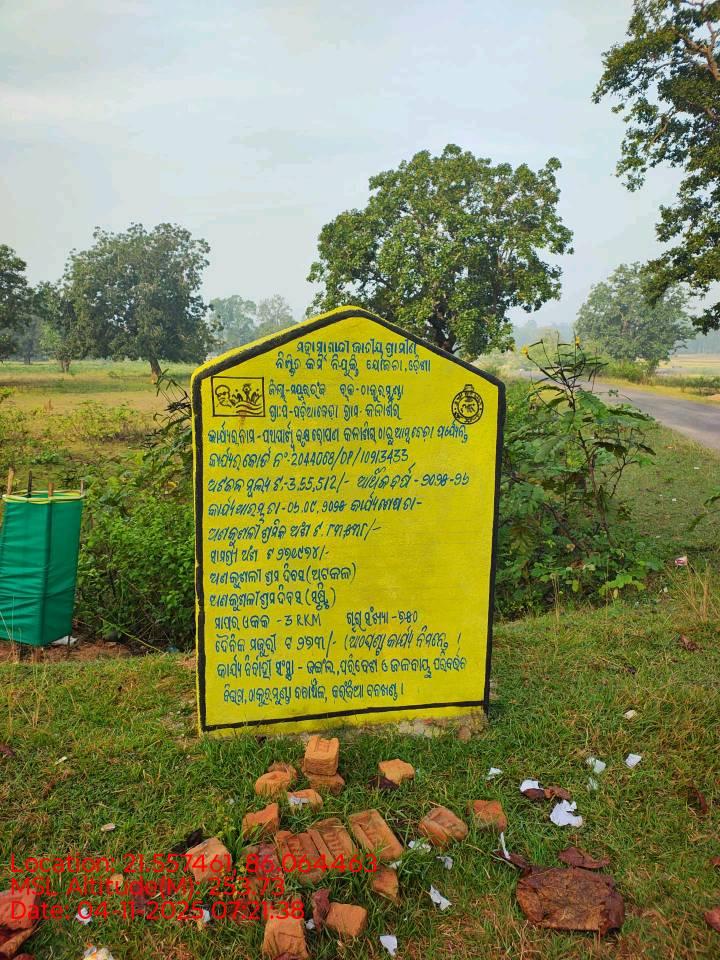 ମହାତ୍ମାଗାନ୍ଧୀ ଜାତୀୟ ଗ୍ରାମୀଣ
ନିଶ୍ଚିତ କର୍ମ ନିଯୁକ୍ତି ଯୋଜନା, ଓଡ଼ିଶା
ଜିଲ୍ଲା-ମୟୂରଭଞ୍ଜ ବ୍ଲକ-ଠାକୁରମୁଣ୍ଡା
ଗ୍ରା:ପ- ଗ୍ରାମ-
କାର୍ଯ୍ୟର ନାମ-ପଥପାର୍ଶ୍ୱ ବୃକ୍ଷରୋପଣ ଠାରୁ ପର୍ଯ୍ୟନ୍ତ
କାର୍ଯ୍ୟର କୋଡ ନଂ-2044068/DP/10913433
ଅଟକଳ ମୂଲ୍ୟ ଟ.-3,55,512/- ଆର୍ଥିକ ବର୍ଷ - ୨୦୨୫-୨୬
କାର୍ଯ୍ୟ ଆରମ୍ଭ ତା-୦୬.୦୯.୨୦୨୫ କାର୍ଯ୍ୟ ଶେଷ ତା-
ଅଣକୁଶଳୀ ଶ୍ରମିକ ଅଂଶ ଟ
ସାମଗ୍ରୀ ଅଂଶ ଟ
ଅଣକୁଶଳୀ ଶ୍ରମ ଦିବସ (ଅଟକଳ)
ଅଣକୁଶଳୀ ଶ୍ରମ ଦିବସ (ସୃଷ୍ଟି)
ମାପର ଏକକ - 3 RKM ବୃକ୍ଷ ସଂଖ୍ୟା -୭୫୦
ଦୈନିକ ମଜୁରୀ ଟ ୨୭୩/- (ଅଠଘଣ୍ଟା କାର୍ଯ୍ୟ ନିମନ୍ତେ ।
କାର୍ଯ୍ୟ ନିର୍ବାହୀ ସଂସ୍ଥା - ଜଙ୍ଗଲ, ପରିବେଶ ଓ ଜଳବାୟୁ ପରିବର୍ତ୍ତନ
ବିଭାଗ, ଠାକୁରମୁଣ୍ଡା ରେଞ୍ଜ, କରଞ୍ଜିଆ ବନଖଣ୍ଡ ।
Location: 21.557461, 86.064463
MSL Altitude(M): 253.73
Date: 04-11-2025 07:21:38